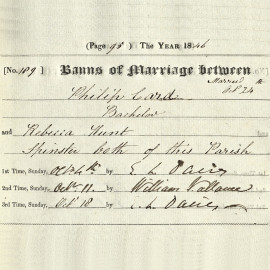 (Page 98) The Year 1846
[No. 189] Banns of Marriage between
Married
Oct 24
Philip Card
Bachelor
and Rebecca Hunt
Spinster both of this Parish
1st Time, Sunday, Octr 4th by E. L. Davies
2nd Time, Sunday, Octr 11 by William
3rd Time, Sunday, Oct 18 by E. L. Davies